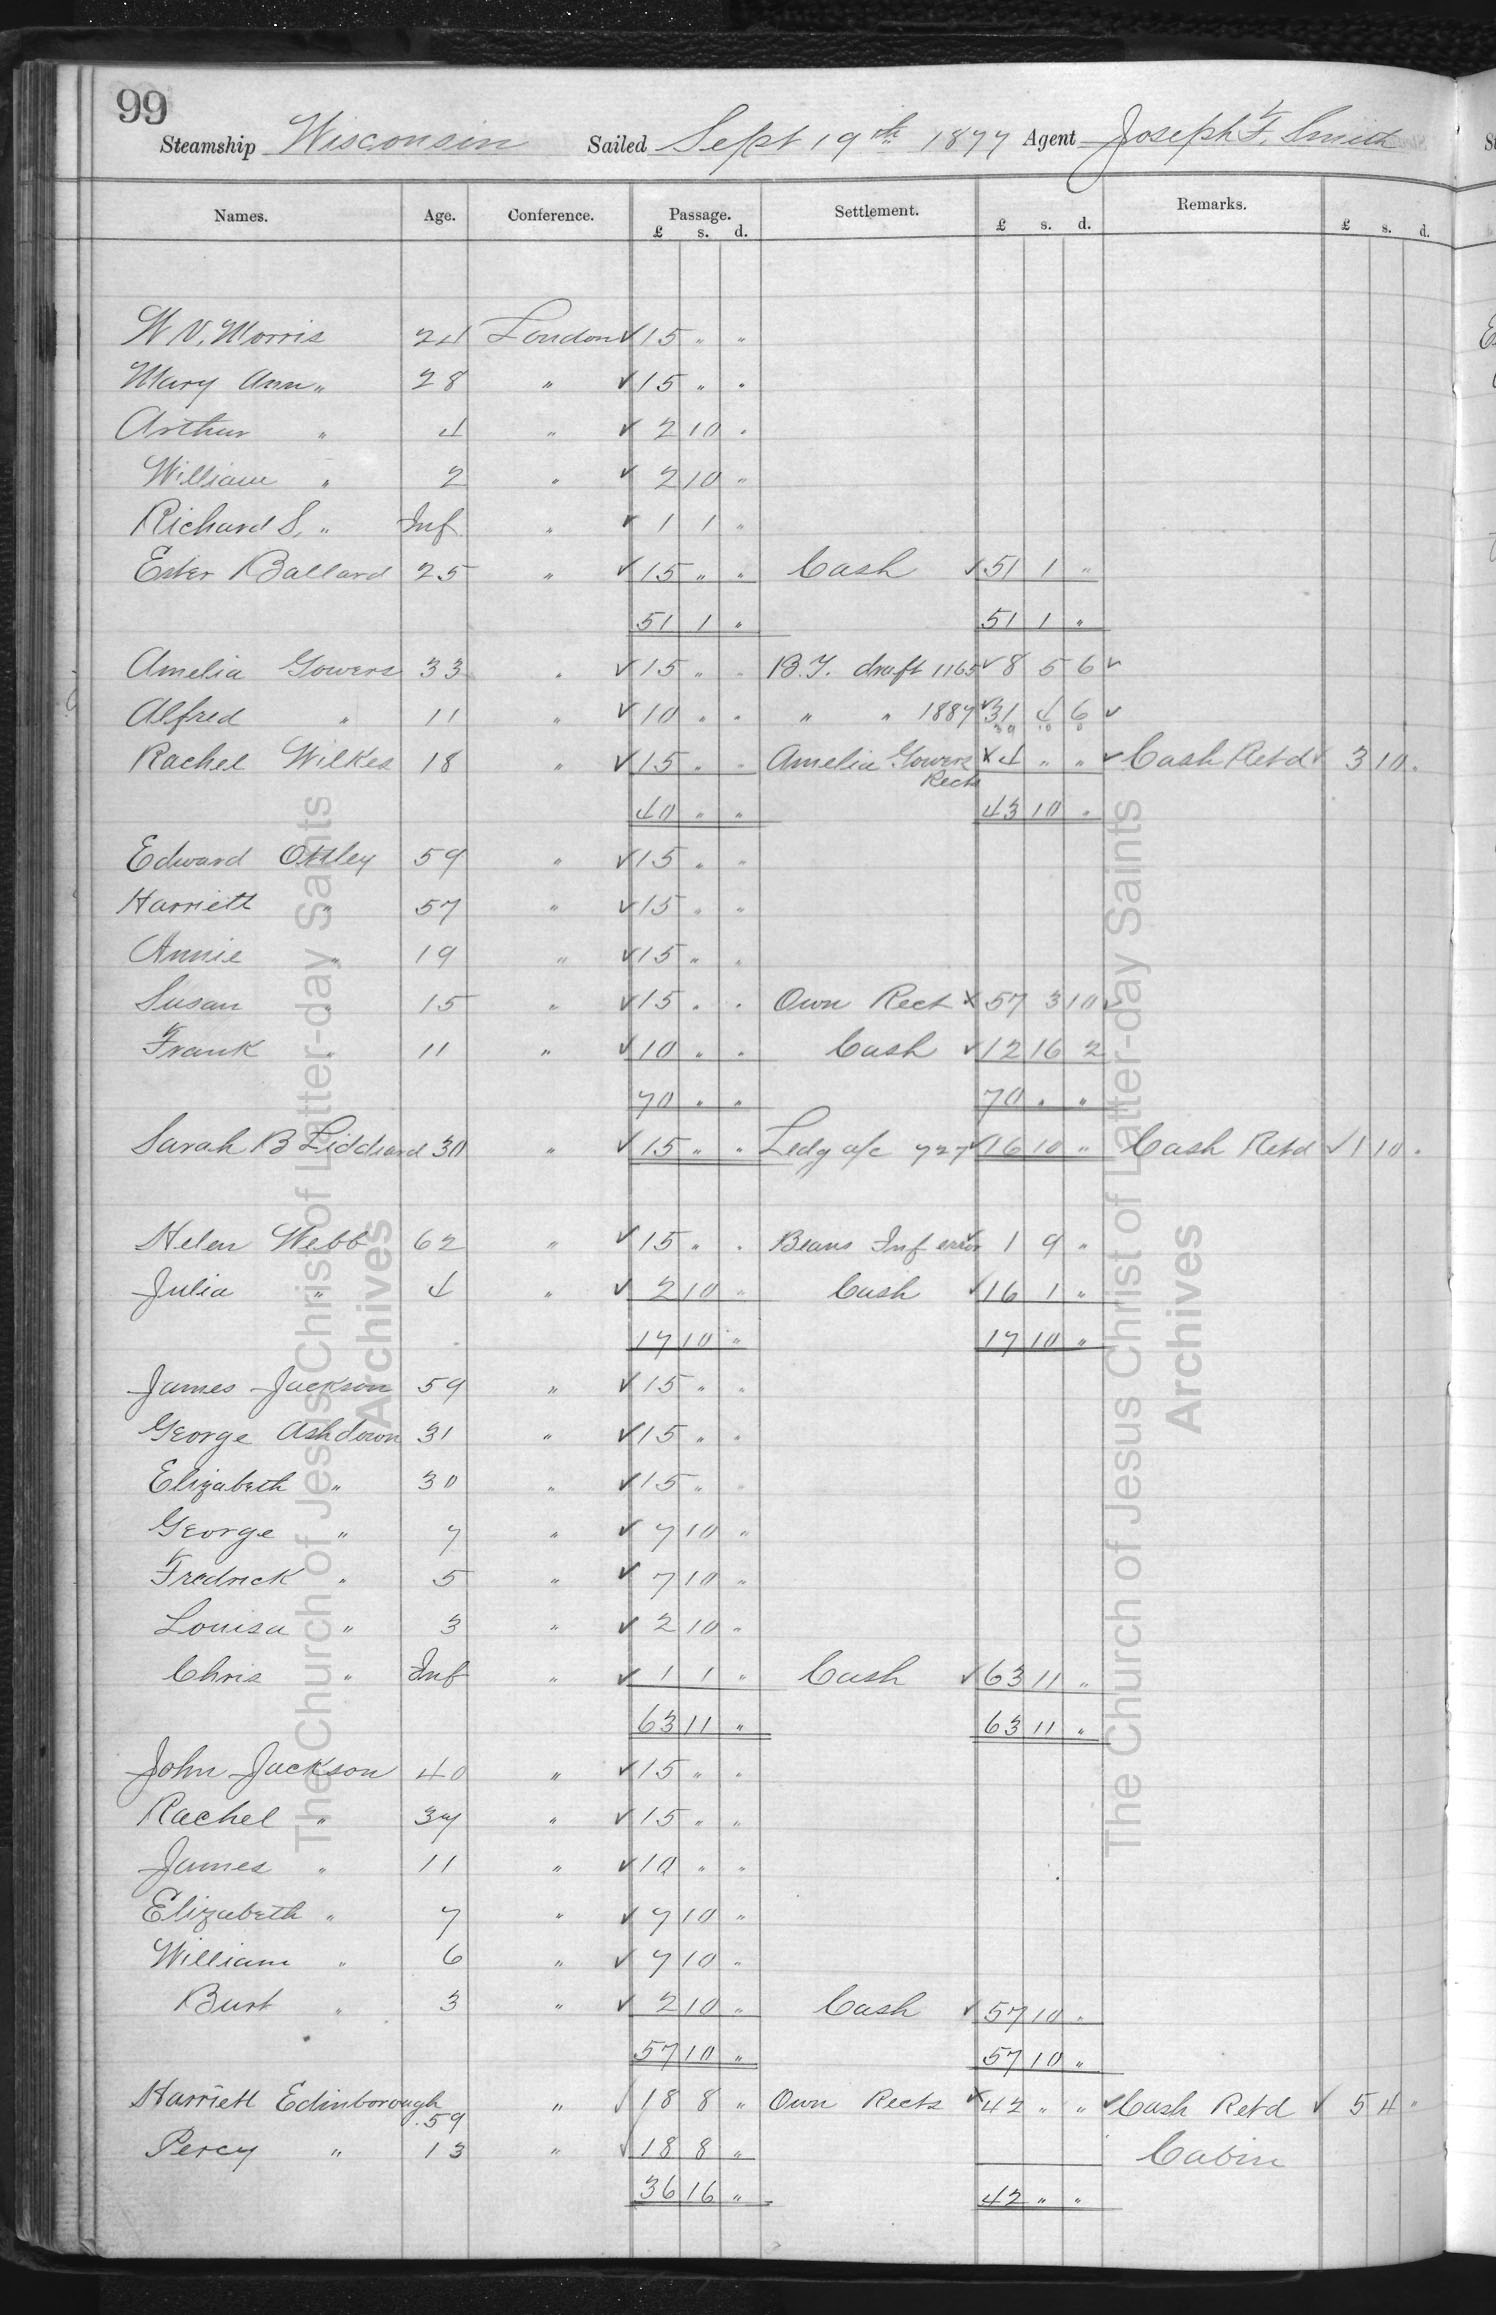 99
Steamship Wisconsin Sailed Sept 19th 1877 Agent Joseph F. Smith
Names. Age. Conference. Passage. £ s. d. Settlement. £ s. d. Remarks. £ s. d.
W V. Morris 24 London ✓ 15 " "
Mary Ann " 28 " ✓ 15 " "
Arthur " 4 " ✓ 2 10 "
William " 2 " ✓ 2 10 "
Richard S. " Inf " ✓ 1 1 "
Ester Ballard 25 " ✓ 15 " " Cash ✓ 51 1 "
51 1 " 51 1 "
Amelia Gowers 33 " ✓ 15 " " B.Y. draft 1165 ✓ 8 5 6 ✓
Alfred " 11 " ✓ 10 " " " " 1887 ✓ 31 4 6 ✓
39 10 0
Rachel Wilkes 18 " ✓ 15 " " Amelia Gowers Rects X 4 " " ✓ Cash Retd ✓ 3 10 "
40 " " 43 10 "
Edward Ottley 59 " ✓ 15 " "
Harriett " 57 " ✓ 15 " "
Annie " 19 " ✓ 15 " "
Susan " 15 " ✓ 15 " " Own Rect X 57 3 10 ✓
Frank " 11 " ✓ 10 " " Cash ✓ 12 16 2
70 " " 70 " "
Sarah B Liddiard 30 " ✓ 15 " " Ledg a/c 727 ✓ 16 10 " Cash Retd ✓ 1 10 "
Helen Webb 62 " ✓ 15 " " Beans Inf error ✓ 1 9 "
Julia " 4 " ✓ 2 10 " Cash ✓ 16 1 "
17 10 " 17 10 "
James Jackson 59 " ✓ 15 " "
George Ashdown 31 " ✓ 15 " "
Elizabeth " 30 " ✓ 15 " "
George " 7 " ✓ 7 10 "
Fredrick " 5 " ✓ 7 10 "
Louisa " 3 " ✓ 2 10 "
Chris " Inf " ✓ 1 1 " Cash ✓ 63 11 "
63 11 " 63 11 "
John Jackson 40 " ✓ 15 " "
Rachel " 37 " ✓ 15 " "
James " 11 " ✓ 10 " "
Elizabeth " 7 " ✓ 7 10 "
William " 6 " ✓ 7 10 "
Burt " 3 " ✓ 2 10 " Cash ✓ 57 10 "
57 10 " 57 10 "
Harriett Edinborough 59 " ✓ 18 8 " Own Rects X 42 " " ✓ Cash Retd ✓ 5 4 "
Percy " 13 " ✓ 18 8 " Cabin
36 16 " 42 " "
The Church of Jesus Christ of Latter-day Saints
Archives
The Church of Jesus Christ of Latter-day Saints
Archives